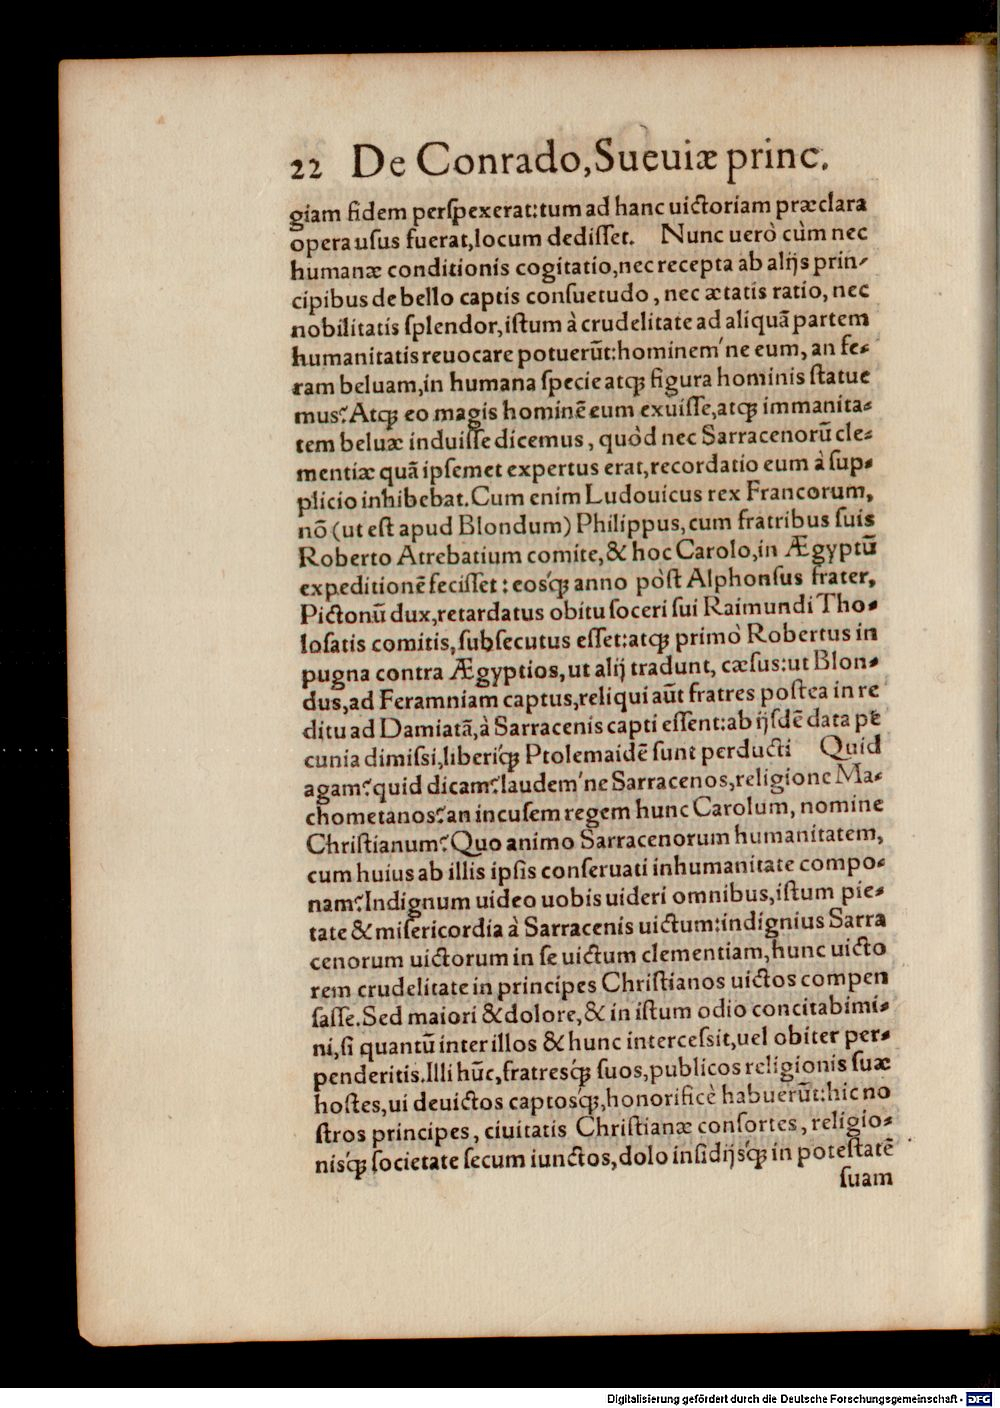 22 De Conrado, Sueuiæ princ.
giam fidem perſpexerat:tum ad hanc uictoriam præclara
opera uſus fuerat,locum dediſſet. Nunc uerò cùm nec
humanæ conditionis cogitatio,nec recepta ab alijs prin-
cipibus de bello captis conſuetudo, nec ætatis ratio, nec
nobilitatis ſplendor,iſtum à crudelitate ad aliquã partem
humanitatis reuocare potuerũt:hominem'ne eum, an fe-
ram beluam,in humana ſpecie atq; figura hominis ſtatue
mus? Atq; eo magis hominẽ eum exuiſſe,atq; immanita-
tem beluæ induiſſe dicemus, quòd nec Sarracenorũ cle-
mentiæ quã ipſemet expertus erat,recordatio eum à ſup-
plicio inhibebat. Cum enim Ludouicus rex Francorum,
nõ (ut eſt apud Blondum) Philippus, cum fratribus ſuis
Roberto Atrebatium comite, & hoc Carolo,in Ægyptũ
expeditionẽ feciſſet: eosq́; anno pòſt Alphonſus frater,
Pictonũ dux,retardatus obitu ſoceri ſui Raimundi Tho-
loſatis comitis,ſubſecutus eſſet:atq; primò Robertus in
pugna contra Ægyptios, ut alij tradunt, cæſus:ut Blon-
dus,ad Feramniam captus,reliqui aũt fratres poſtea in re
ditu ad Damiatã,à Sarracenis capti eſſent:ab ijſdẽ data pe
cunia dimiſsi,liberiq́; Ptolemaidẽ ſunt perducti Quid
agam? quid dicam? laudem'ne Sarracenos,religione Ma-
chometanos? an incuſem regem hunc Carolum, nomine
Chriſtianum? Quo animo Sarracenorum humanitatem,
cum huius ab illis ipſis conſeruati inhumanitate compo-
nam? Indignum uideo uobis uideri omnibus,iſtum pie-
tate & miſericordia à Sarracenis uictum:indignius Sarra
cenorum uictorum in ſe uictum clementiam,hunc uicto
rem crudelitate in principes Chriſtianos uictos compen
ſaſſe. Sed maiori & dolore, & in iſtum odio concitabimi-
ni,ſi quantũ inter illos & hunc interceſsit,uel obiter per-
penderitis. Illi hũc,fratresq́; ſuos,publicos religionis ſuæ
hoſtes,ui deuictos captosq́;,honorificè habuerũt:hic no
ſtros principes, ciuitatis Chriſtianæ conſortes, religio-
nisq́; ſocietate ſecum iunctos,dolo inſidijsq́; in poteſtatẽ
ſuam
Digitalisierung gefördert durch die Deutsche Forschungsgemeinschaft - DFG